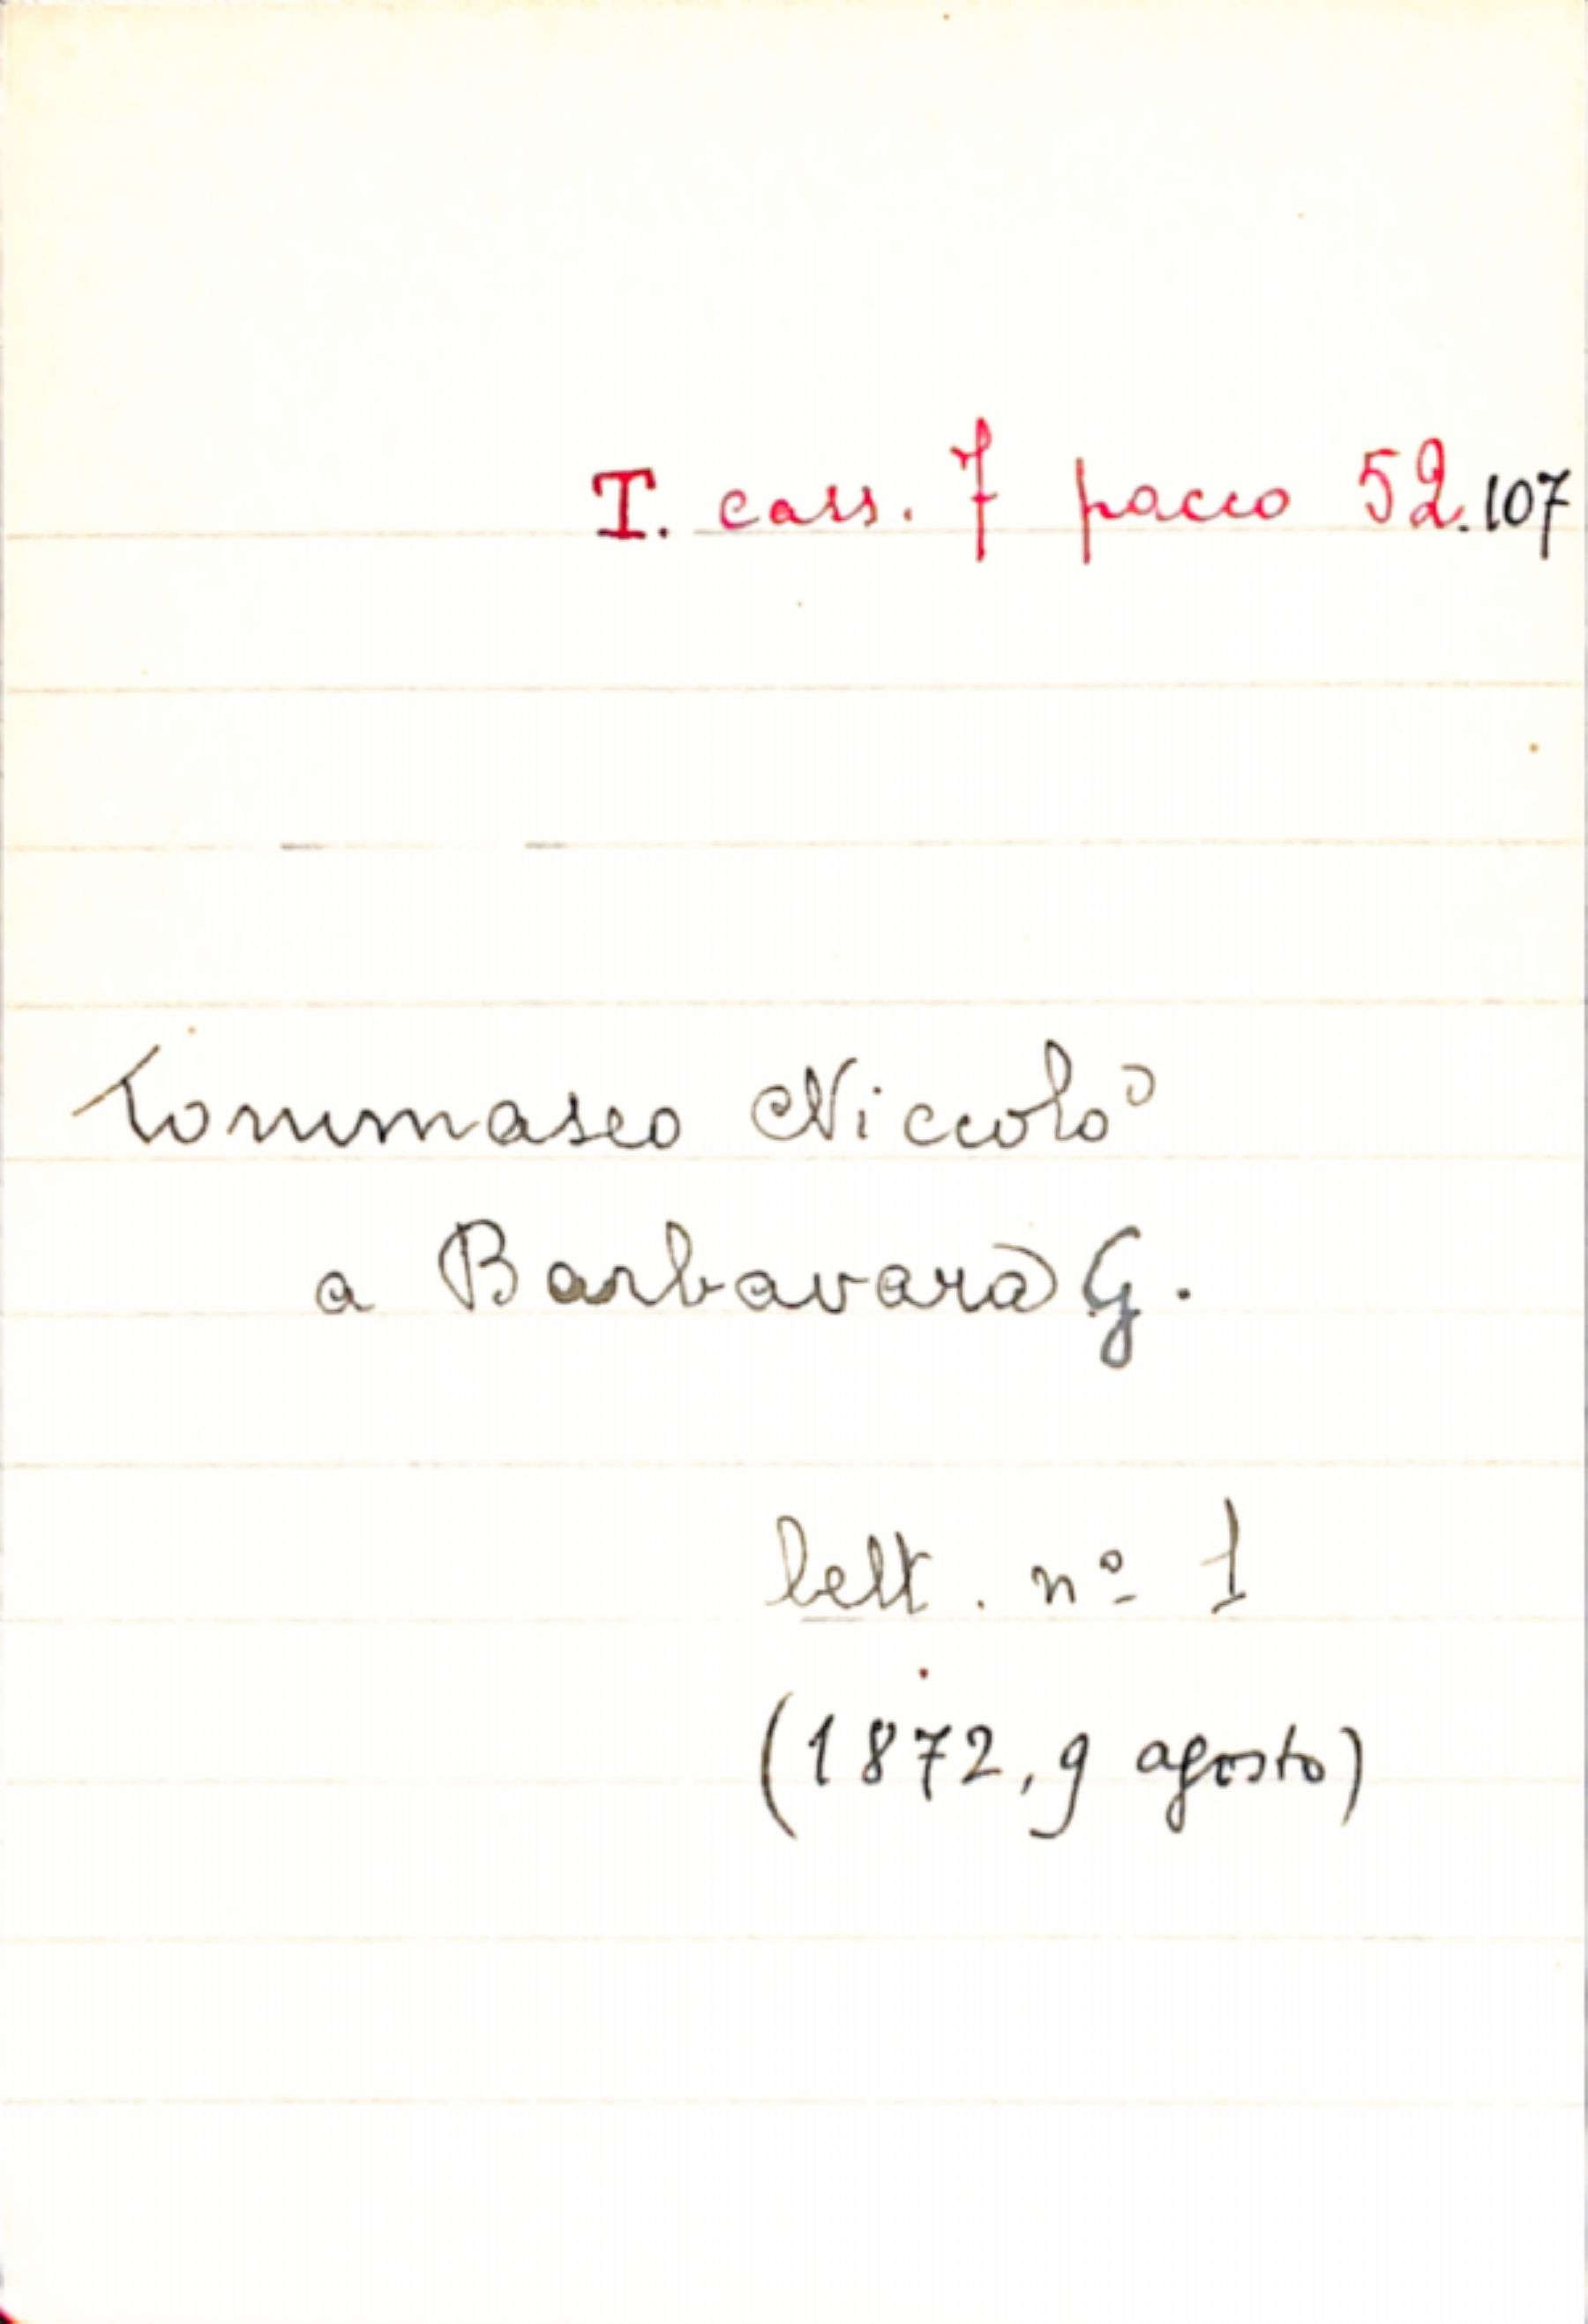 T. cass. 7 pacco 52.107
Tommaseo Niccolò
a Barbavara G.
lett. nº 1
(1872, 9 agosto)